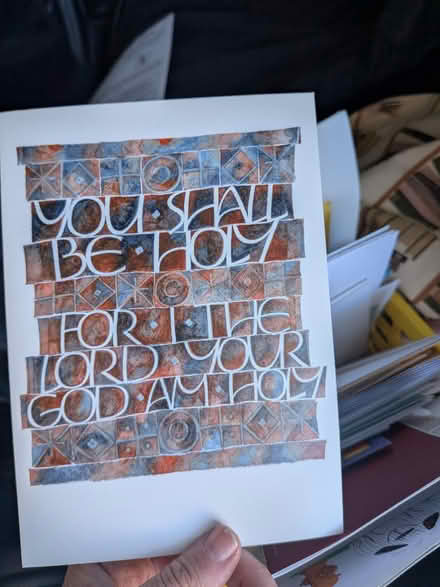 YOU SHALL
BE HOLY
FOR I THE
LORD YOUR
GOD AM HOLY